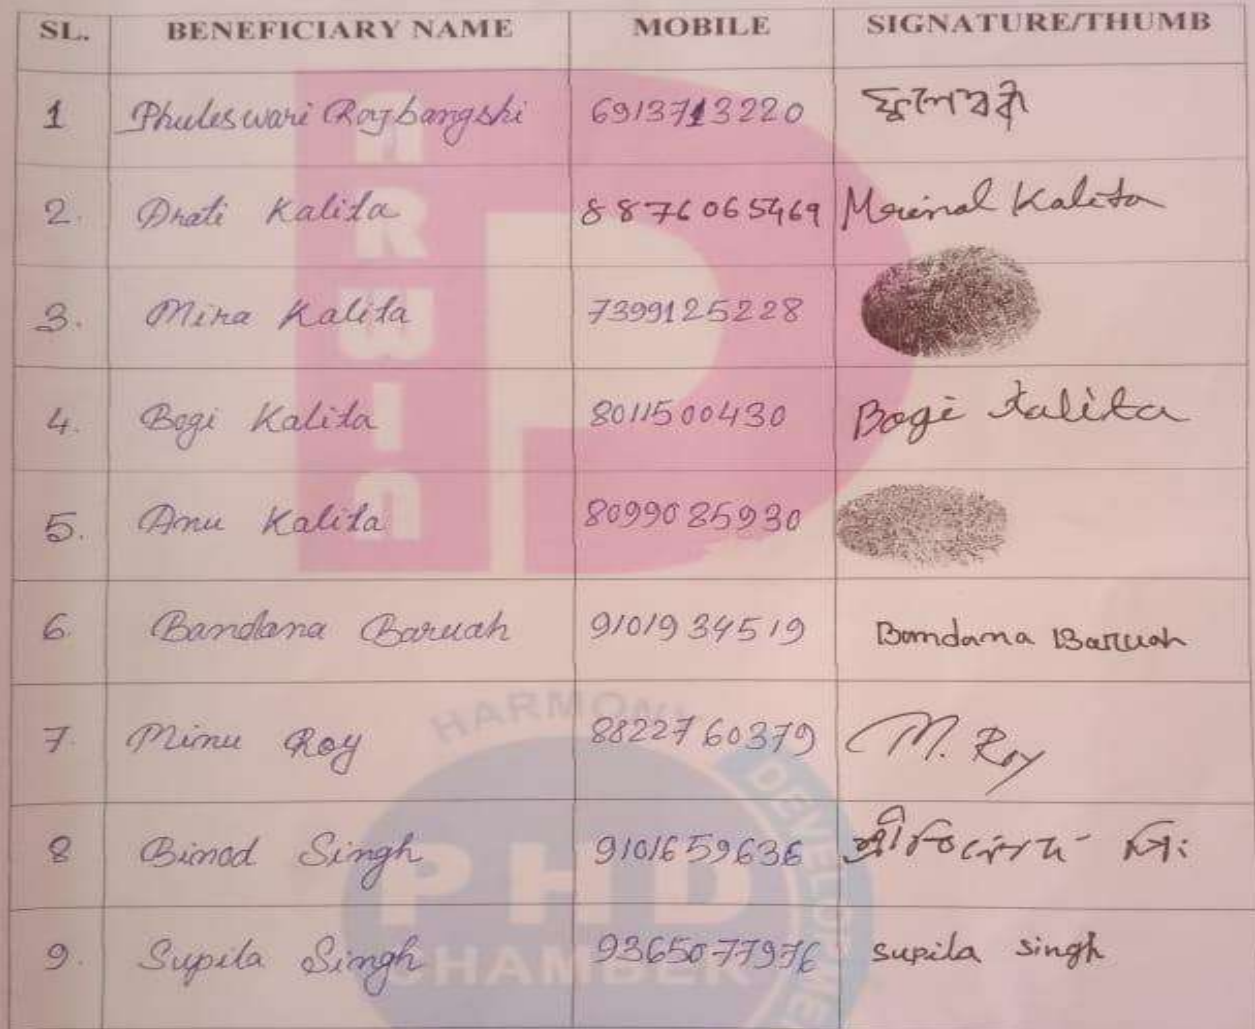 SL. BENEFICIARY NAME MOBILE SIGNATURE/THUMB
1 Phuleswari Roybangshi 6913713220 ফুলেশ্বৰী
2. Drati Kalita 8876065469 Mrinal Kalita
3. Mira Kalita 7399125228
4. Bogi Kalita 8011500430 Bogi Kalita
5. Anu Kalita 8099085930
6. Bandana Baruah 9101934519 Bandana Baruah
7. Minu Roy 8822760379 M. Roy
8 Binod Singh 9101659636
9. Supila Singh 9365077976 Supila Singh
ARBIN
HARMONY
DEVELOPME
PHD
CHAMBER